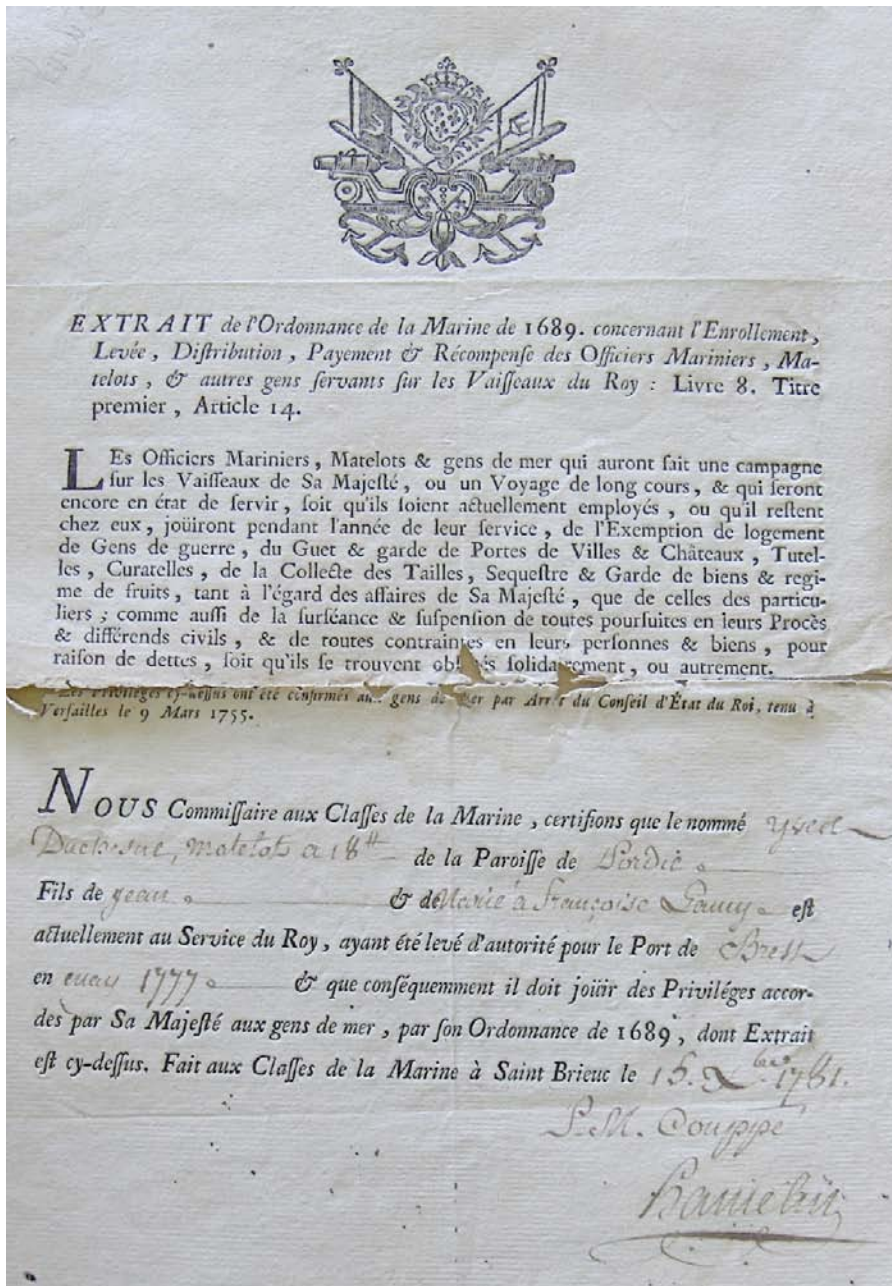 EXTRAIT de l'Ordonnance de la Marine de 1689. concernant l'Enrollement,
Levée, Diſtribution, Payement & Récompenſe des Officiers Mariniers, Ma-
telots, & autres gens ſervants ſur les Vaiſſeaux du Roy : Livre 8. Titre
premier, Article 14.
LEs Officiers Mariniers, Matelots & gens de mer qui auront fait une campagne
ſur les Vaiſſeaux de Sa Majeſté, ou un Voyage de long cours, & qui ſeront
encore en état de ſervir, ſoit qu'ils ſoient actuellement employés, ou qu'il reſtent
chez eux, joüiront pendant l'année de leur ſervice, de l'Exemption de logement
de Gens de guerre, du Guet & garde de Portes de Villes & Châteaux, Tutel-
les, Curatelles, de la Collecte des Tailles, Sequeſtre & Garde de biens & regi-
me de fruits, tant à l'égard des affaires de Sa Majeſté, que de celles des particu-
liers ; comme auſſi de la ſurſéance & ſuſpenſion de toutes pourſuites en leurs Procès
& différends civils, & de toutes contraintes en leurs perſonnes & biens, pour
raiſon de dettes, ſoit qu'ils ſe trouvent ſolidairement, ou autrement.
Les Privilèges cy-deſſus ont été confirmés aux gens de mer par Arrêt du Conſeil d'État du Roi, tenu à
Verſailles le 9 Mars 1755.
NOUS Commiſſaire aux Claſſes de la Marine, certifions que le nommé
Duchesne, matelot a 18 de la Paroiſſe de Pordic
Fils de jean & de Françoise est
actuellement au Service du Roy, ayant été levé d'autorité pour le Port de Brest
en 1777 & que conſéquemment il doit joüir des Priviléges accor-
dés par Sa Majeſté aux gens de mer, par ſon Ordonnance de 1689, dont Extrait
eſt cy-deſſus. Fait aux Claſſes de la Marine à Saint Brieuc le 1781.
P. M. Couppé